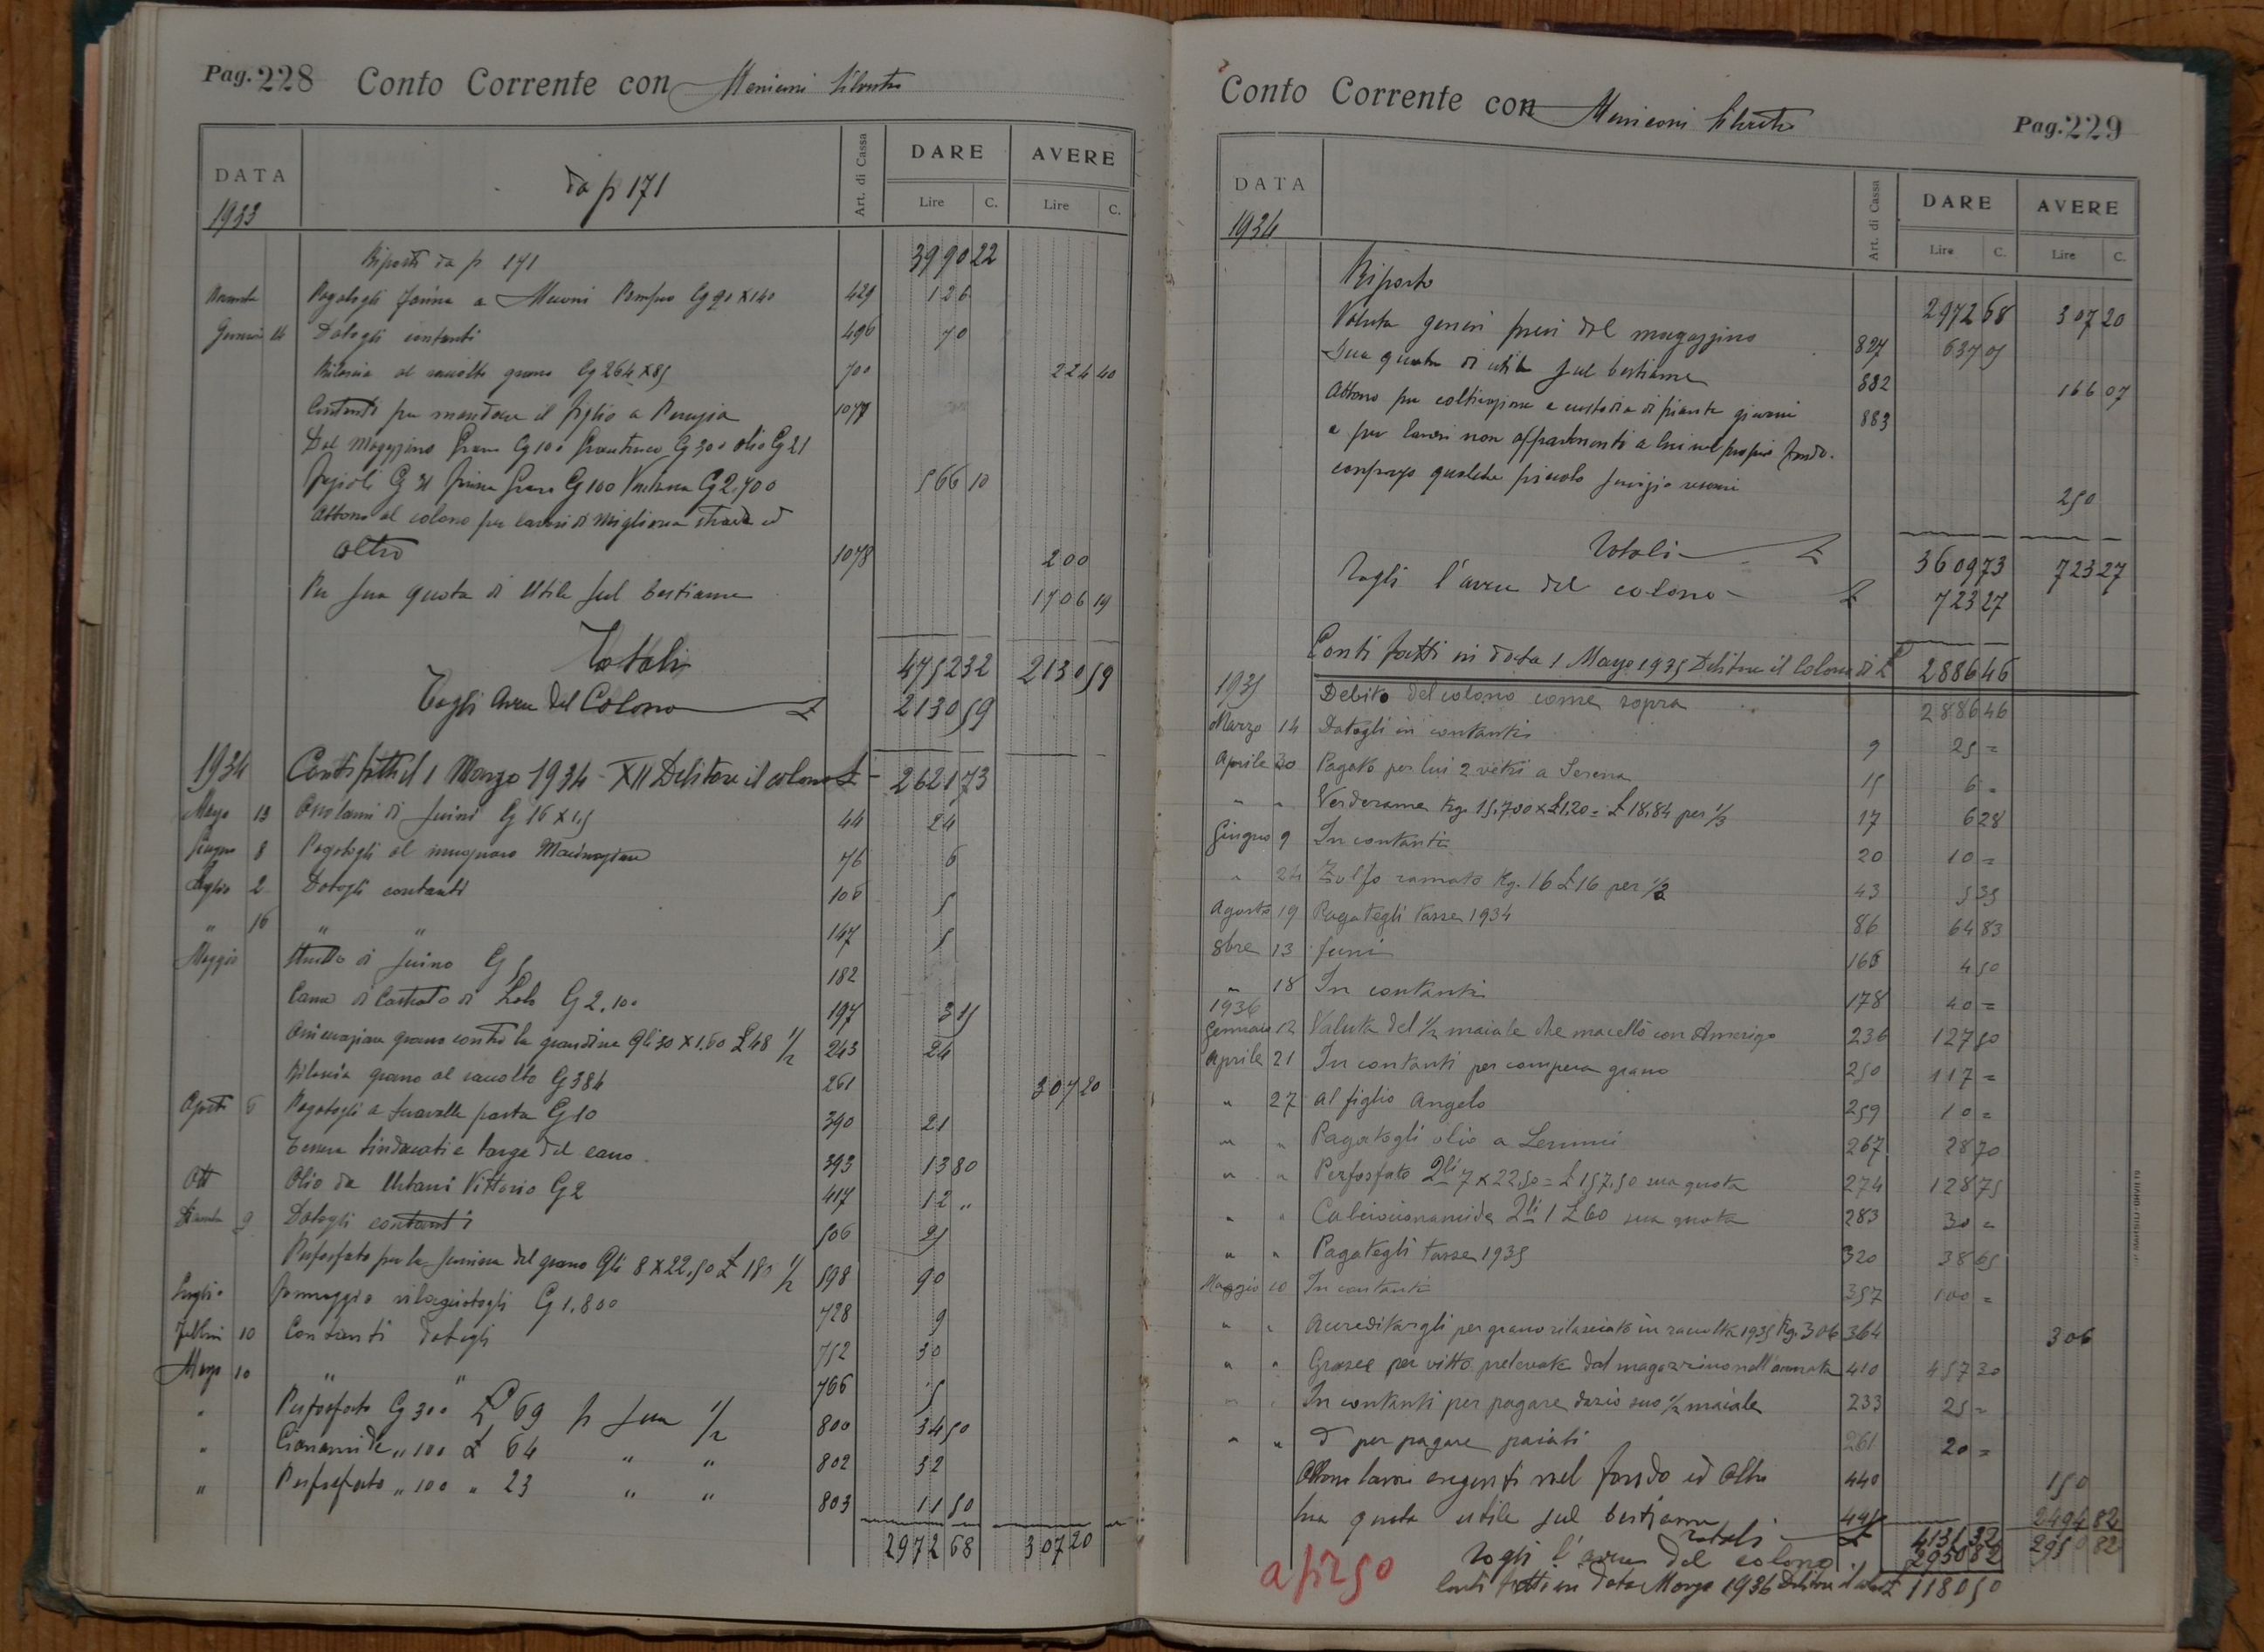 Pag. 228 Conto Corrente con Meniconi Silvestro
DATA DARE AVERE
Art. di Cassa
Lire C. Lire C.
1933 da p 171
Riporti da p 171 3990 22
Pagatogli farina a Pompeo Cg 90 X 140 429 126
14 Datogli contanti 496 70
Rilascia al raccolto grano Cg 264 X 85 700 224 40
Contanti per mandare il figlio a Perugia 1077
Dal Magazzino Grano Cg 100 Granturco Cg 300 olio Cg 21
Fagioli Cg 31 farina Grano Cg 100 Cg 2.700 566 10
Abbono al colono per lavori di miglioria strada ed
altro 1078 200
Per sua quota di Utile sul bestiame 1706 19
Totali 4752 32 2130 59
Togli Avere del Colono £ 2130 59
1934 Conti fatti il 1 Marzo 1934 - XII Debitore il colono £ 2621 73
13 di suini Cg 16 X 1,5 44 24
Giugno 8 Pagatogli al mugnaio Macinazione 76 6
Luglio 2 Datogli contanti 106 5
" 16 " " 147 5
Maggio Strutto di suino Cg 5 182
Carne di Castrato di Cg 2,100 197 3 15
Assicurazione grano contro la grandine Qli 30 X 1.60 £ 48 1/2 243 24
Rilascia grano al raccolto Cg 384 261 307 20
Agosto 6 Pagatogli a pasta Cg 10 390 21
Tessere Sindacati e targa del carro 393 13 80
Ott Olio da Urbani Vittorio Cg 2 417 12 "
9 Datogli contanti 506 25
Perfosfato per la semina del grano Qli 8 X 22,50 £ 180 1/2 598 90
Luglio formaggio Cg 1.800 728 9
10 Contanti datogli 752 30
Marzo 10 " " 766 5
" Perfosfato Cg 300 £ 69 p sua 1/2 800 34 50
" Cianamide " 100 £ 64 " " 802 32
" Perfosfato " 100 " 23 " " 803 11 50
2972 68 307 20
Conto Corrente con Meniconi Silvestro Pag. 229
DATA DARE AVERE
Art. di Cassa
Lire C. Lire C.
1934
Riporto 2972 68 307 20
Valuta generi presi dal magazzino 827 637 05
Sua quota di utile sul bestiame 882 166 07
Abbono per coltivazione e custodia di piante giovani 883
e per lavori non appartenenti a lui nel proprio fondo.
compreso qualche piccolo servizio 250
Totali £ 3609 73 723 27
Togli l'avere del colono £ 723 27
Conti fatti in data 1 Marzo 1935 Debitore il Colono di £ 2886 46
1935 Debito del colono come sopra 2886 46
Marzo 14 Datogli in contanti 9 25 =
Aprile 30 Pagato per lui 2 vetri a Serena 15 6 =
" " Verderame Kg. 15,700 x £1,20 = £ 18,84 per 1/3 17 6 28
Giugno 9 In contanti 20 10 =
" 24 Zolfo ramato Kg. 16 £ 16 per 1/3 43 5 35
Agosto 19 Pagategli tasse 1934 86 64 83
8bre 13 funi 165 4 50
" 18 In contanti 178 40 =
1936
Gennaio 12 Valuta del 1/2 maiale che macellò con Amerigo 236 127 50
Aprile 21 In contanti per compera grano 250 117 =
" 27 Al figlio Angelo 259 10 =
" " Pagatogli olio a 267 28 70
" " Perfosfato Qli 7 x 22,50 = £ 157,50 sua quota 274 128 75
" " Calciocianamide Qli 1 £ 60 sua quota 283 30 =
" " Pagategli tasse 1935 320 38 65
Maggio 10 In contanti 357 100 =
" " Accreditargli per grano rilasciato in raccolta 1935 Kg. 306 364 306
" " Grasce per vitto prelevate dal magazzino nell'annata 410 457 30
" " In contanti per pagare dazio suo 1/2 maiale 233 25 =
" " d per pagare paiati 261 20 =
Abbono lavori eseguiti nel fondo ed altro 440 150
Sua quota utile sul bestiame 445 2494 82
Totali £ 4131 32 2950 82
Togli l'avere del colono 2950 82
Conti fatti in data Marzo 1936 Debitore il colono £ 1180 50
a p 250